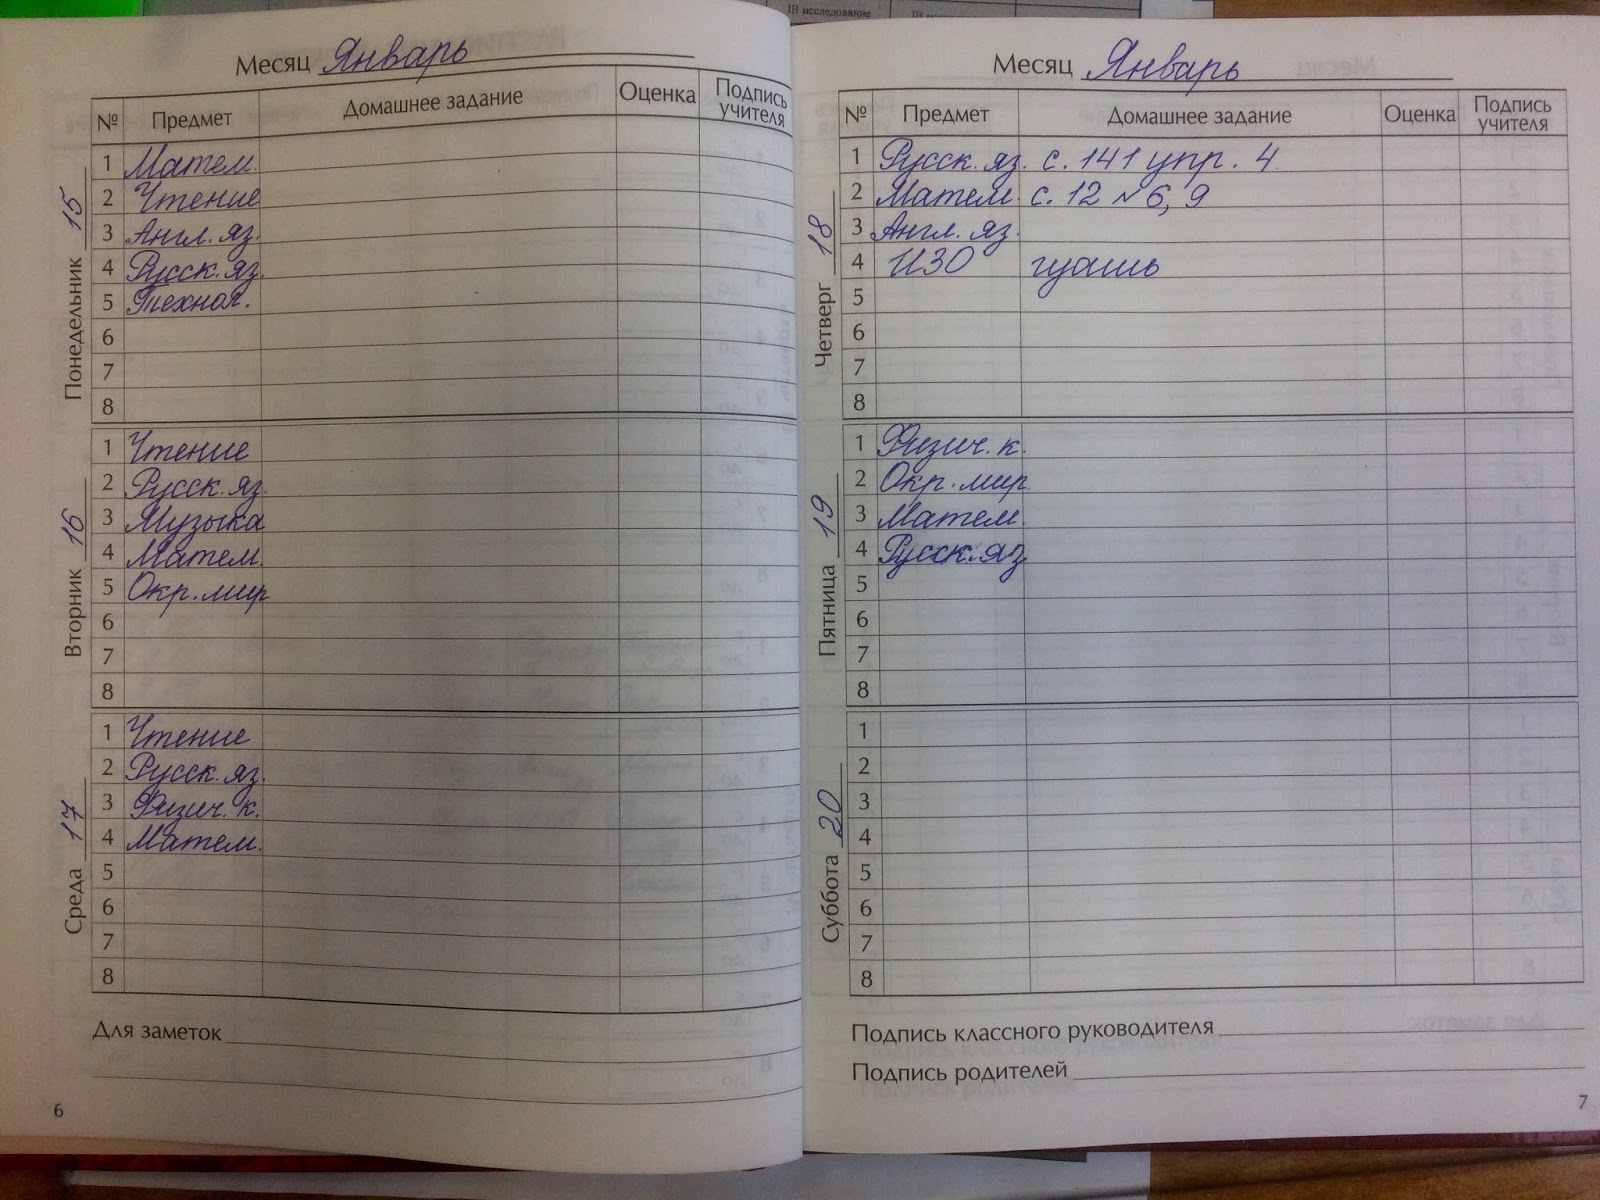 IВ исследование
Месяц Январь
№ Предмет Домашнее задание Оценка Подпись учителя
Понедельник 15
1 Матем.
2 Чтение
3 Англ. яз.
4 Русск. яз.
5 Технол.
6
7
8
Вторник 16
1 Чтение
2 Русск. яз.
3 Музыка
4 Матем.
5 Окр. мир
6
7
8
Среда 17
1 Чтение
2 Русск. яз.
3 Физич. к.
4 Матем.
5
6
7
8
Для заметок
6
Месяц Январь
№ Предмет Домашнее задание Оценка Подпись учителя
Четверг 18
1 Русск. яз. с. 141 упр. 4
2 Матем. с. 12 № 6, 9
3 Англ. яз.
4 ИЗО гуашь
5
6
7
8
Пятница 19
1 Физич. к.
2 Окр. мир.
3 Матем.
4 Русск. яз
5
6
7
8
Суббота 20
1
2
3
4
5
6
7
8
Подпись классного руководителя
Подпись родителей
7